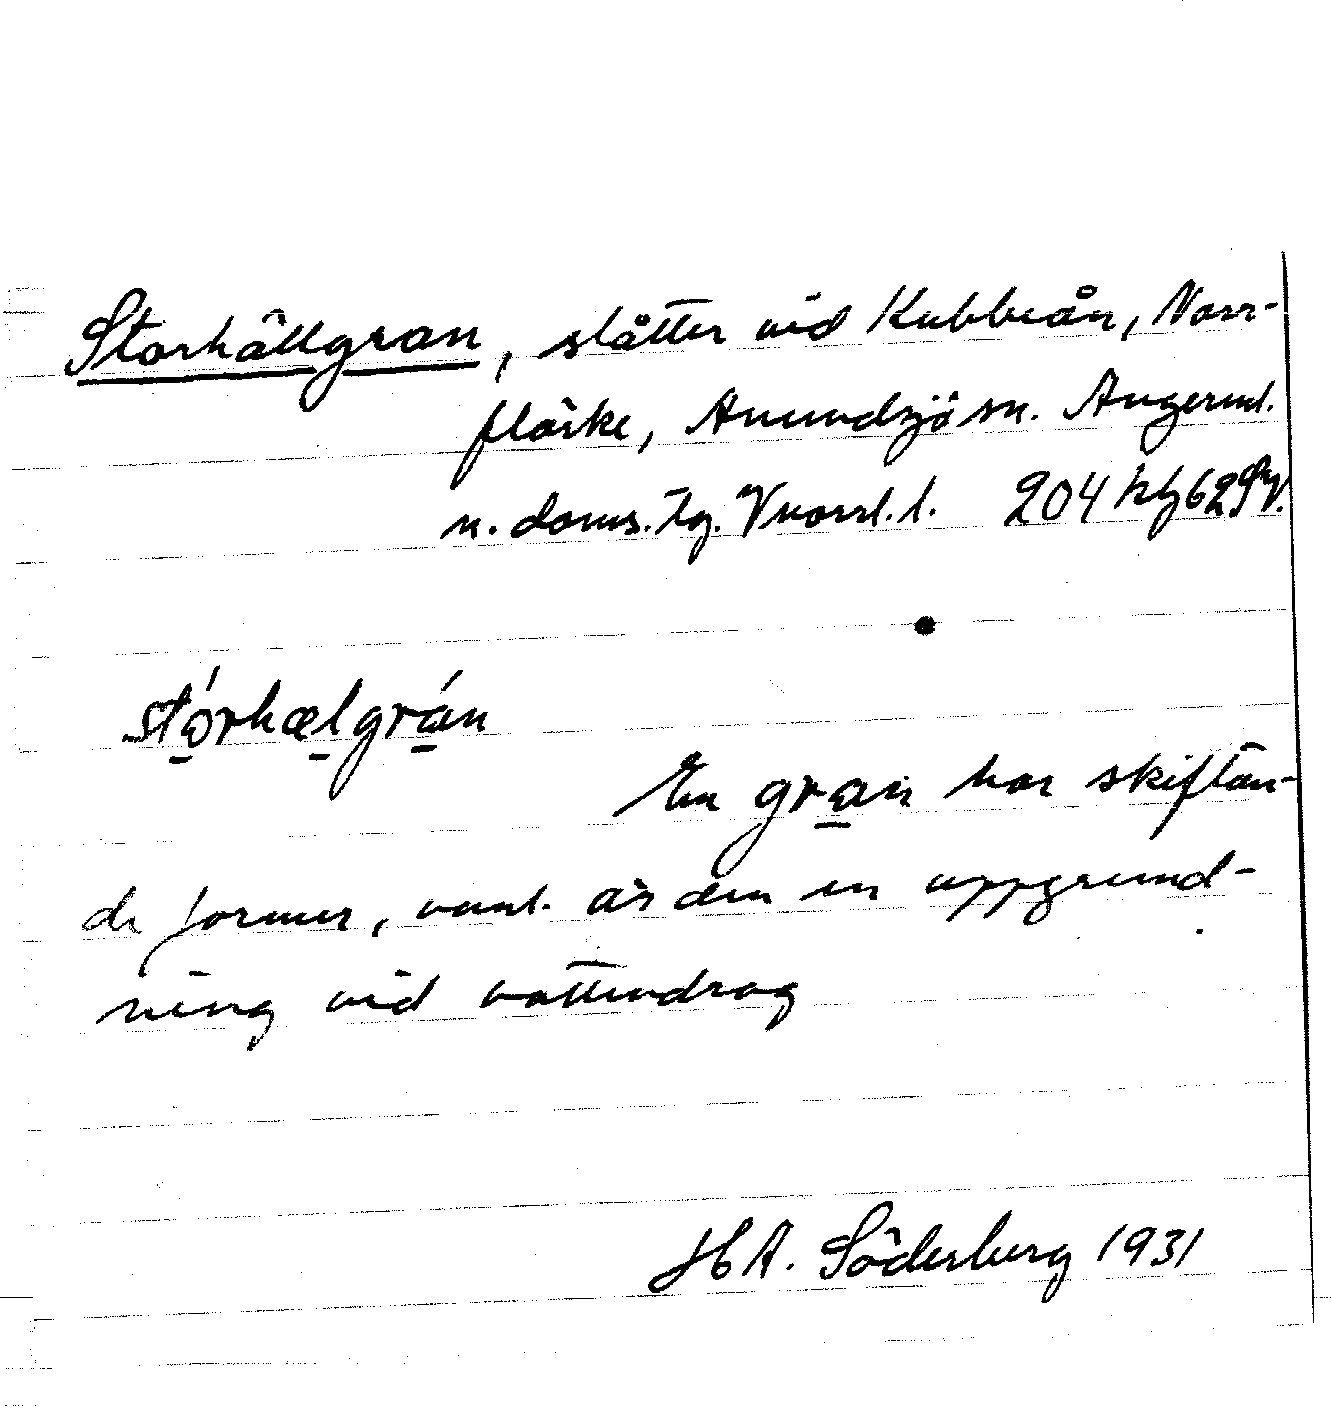 Storhällgran, slåtter vid Kubbeån, Norr-
flärke, Anundsjö sn. Ångerml.
n. doms. Tg. Vnorrl. l. 204 kfg
stórhælgrán
En gran har skiftan-
de former, vanl. är den en uppgrund-
ning vid vattendrag
H A. Söderberg 1931